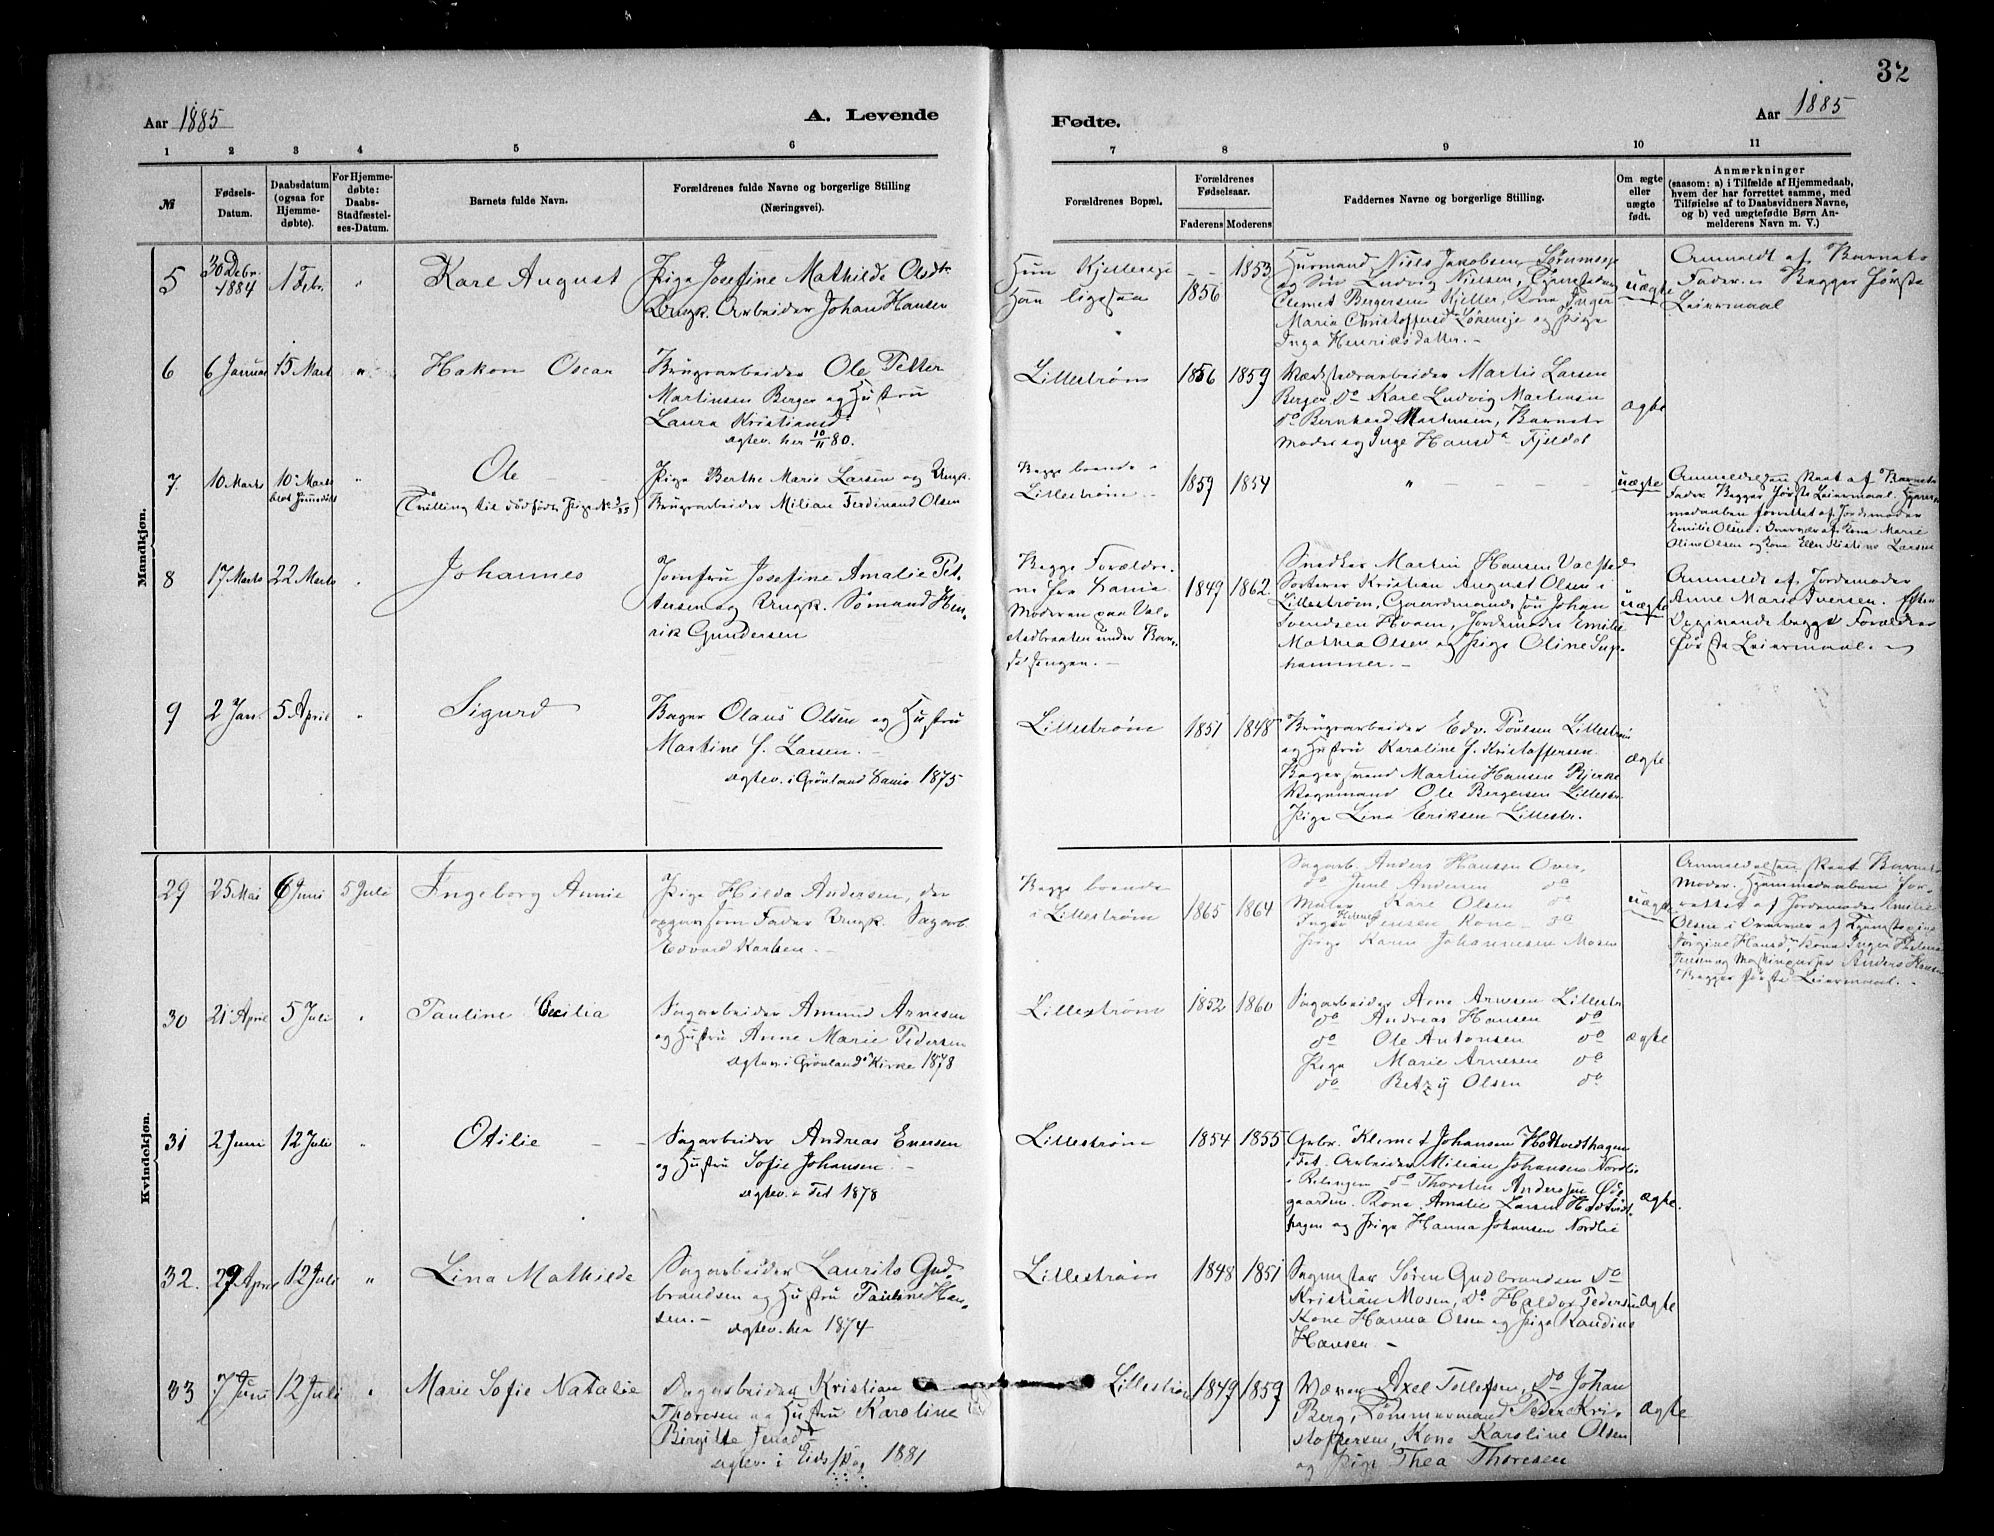 32
Aar 1885
A. Levende
Fødte.
Aar 1885
1 2 3 4 5 6 7 8 9 10 11
№
Fødsels-
Datum.
Daabsdatum
(ogsaa for
Hjemme-
døbte).
For Hjemme-
døbte:
Daabs-
Stadfæstel-
ses-Datum.
Barnets fulde Navn.
Forældrenes fulde Navne og borgerlige Stilling
(Næringsvei).
Forældrenes Bopæl.
Forældrenes
Fødselsaar.
Faderens Moderens
Faddernes Navne og borgerlige Stilling.
Om ægte
eller
uægte
født.
Anmærkninger
(saasom: a) i Tilfælde af Hjemmedaab,
hvem der har forrettet samme, med
Tilføielse af to Daabsvidners Navne,
og b) ved uægtefødte Børn An-
melderens Navn m. V.)
Mandkjøn.
5
30 Debr.
1884
1 Febr.
"
Karl August
Pige Josefine Mathilde Olsdtr
Ungk. Arbeider Johan Hansen
Hun Kjellereje
Han ligesaa
1856
1853
Husmand Niels Jakobsen Sørumseje
og Søn Ludvig Nielsen,
Clemet Bergersen Kjeller, Kone Inger
Marie Christoffersd Løkeneje og Pige
Inga Henriksdatter.-
uægte
Anmeldt af Barnets
Fader.- Begges første
Leiermaal
6
6 Januar
15 Mart
"
Hakon Oscar
Brugsarbeider Ole Petter
Martinsen Berger og Hustru
Laura Kristiansd
ægtev. her 10/11 80.
Lillestrøm
1856
1859
Værkstedsarbeider Martin Larsen
Berger, Do Karl Ludvig Martinsen
do Bernhard Martinsen, Barnets
Moder og Inge Hansda Fjeldet
ægte
7
10 Marts
10 Marts
"
Ole
(Tvilling til dødfødt Pige No 3/85)
Pige Berthe Marie Larsen og Ungk.
Brugsarbeider Milian Ferdinand Olsen
Begge boende
Lillestrøm -
1859
1854
"
uægte
Anmeldelsen skeet af Barnets
Fader. Begges første Leiermaal. Hjemme-
medaaben forrettet af Jordemoder
Emilie Olsen i Overvær af Kone Marie
Oline Olsen og Kone Ellen Kristine Larsen
8
17 Marts
22 Marts
"
Johannes
Jomfru Josefine Amalie Pet-
tersen og Ungk. Sømand Hen-
rik Gundersen
Begge Forældre-
ne fra Xania
Moderen paa Val-
stedbraaten under
1849
1862.
Snedker Martin Hansen Valsted
Sorterer Kristian August Olsen i
Lillestrøm, Gaardmandssøn Johan
Svendsen Hvam, Jordemoder Emilie
Mathea Olsen og Pige Oline Sup-
hammer.-
uægte
Anmeldt af Jordemoder
Anne Marie Iversen. Efter
Opgivende begges Forældres
første Leiermaal.
9
2 Jan
5 April
"
Sigurd
Bager Olaus Olsen og Hustru
Martine J. Larsen.
ægtev. i Grønland Xania 1875
Lillestrøm
1851
1848
Brugsarbeider Edv. Poulsen Lillestrøm
og Hustru Karoline J. Kristoffersen
Bagersvend Martin Hansen Bjerke
Vognmand Ole Bergersen Lillestr.
Pige Lina Eriksen Lillestr.
ægte
Kvindekjøn.
29
25 Mai
6 Juni
5 Juli
Ingeborg Annie
Pige Hilda Andersen, der
opgav som Fader Ungk. Sagarb.
Edvard Karlsen.
Begge boende
i Lillestrøm
1865
1864
Sagarb. Anders Hansen
do Juul Andersen do
Maler Karl Olsen do
Inger Helene Jensen Kone do
Pige Karen Johannesen Mosen
uægte
Anmeldelsen skeet Barnets
Moder. Hjemmedaaben for-
rettet af Jordemoder Emilie
Olsen i Overvær af Tjenestepige
Jørgine Hansd, Kone Inger Helene
Jensen og Anders Hansen
Begges første Leiermaal.
30
21 April
5 Juli
"
Pauline Cecilia
Sagarbeider Amund Arnesen
og Hustru Anne Marie Pedersen
ægtev. i Grønlands Kirke 1878
Lillestrøm
1852
1860
Sagarbeider Arne Arnesen Lillestr
do Andreas Hansen do
do Ole Antonsen do
Pige Marie Arnesen do
do Betzy Olsen do
ægte
31
2 Juni
12 Juli
"
Otilie
Sagarbeider Andreas Evensen
og Hustru Sofie Johansen.
ægtev. i Fet 1878
Lillestrøm
1854
1855
Gbr. Klemet Johansen Hodtvedthagen
i Fet. Arbeider Milian Johansen Nordlie
i Relingen do Thorstin Anderssen
gaarden. Kone Amalie Larsen Hodtvedt-
hagen og Pige Hanna Johansen Nordlie
ægte.
32.
29 April
12 Juli
"
Lina Mathilde
Sagarbeider Laurits Gud-
brandsen og Hustru Pauline Han-
sen.-
ægtev. her 1874
Lillestrøm
1848
1851
Sagmester Søren Gudbrandsen do
Kristian Mosen, Do Haldor Pedersen
Kone Hanna Olsen og Pige Randine
Hansen
ægte
33
7 Juni
12 Juli
"
Marie Sofie Natalie
Dagarbeider Kristian
Thoresen og Hustru Karoline
Birgitte
ægtev. i Eidsskog 1881
Lillestrøm
1849
1859
Axel Tollefsen, Do Johan
Berg, Tømmermand Peder Kri-
stoffersen, Kone Karoline Olsen
og Pige Thea Thoresen
ægte